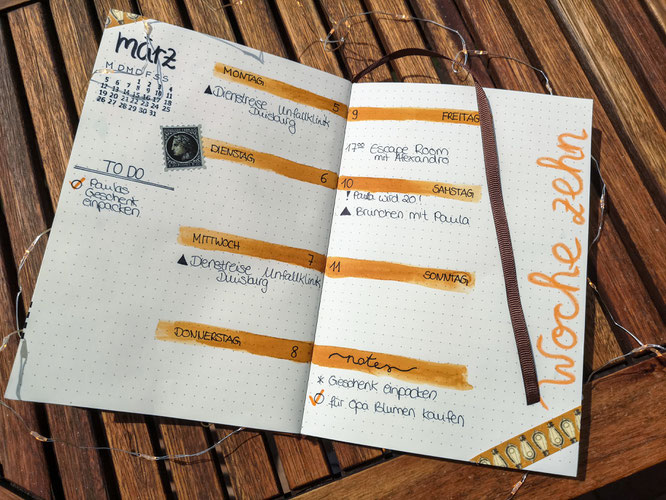 märz
M D M D F S S
1 2 3 4
5 6 7 8 9 10 11
12 13 14 15 16 17 18
19 20 21 22 23 24 25
26 27 28 29 30 31
TO DO
Paulas
Geschenk
einpacken
MONTAG 5
Dienstreise Unfallklinik
Duisburg
DIENSTAG 6
MITTWOCH 7
Dienstreise Unfallklinik
Duisburg
DONNERSTAG 8
9 FREITAG
17⁰⁰ Escape Room
mit Alexandro
10 SAMSTAG
! Paula wird 20!
Brunchen mit Paula
11 SONNTAG
notes
* Geschenk einpacken
für Opa Blumen kaufen
Woche zehn